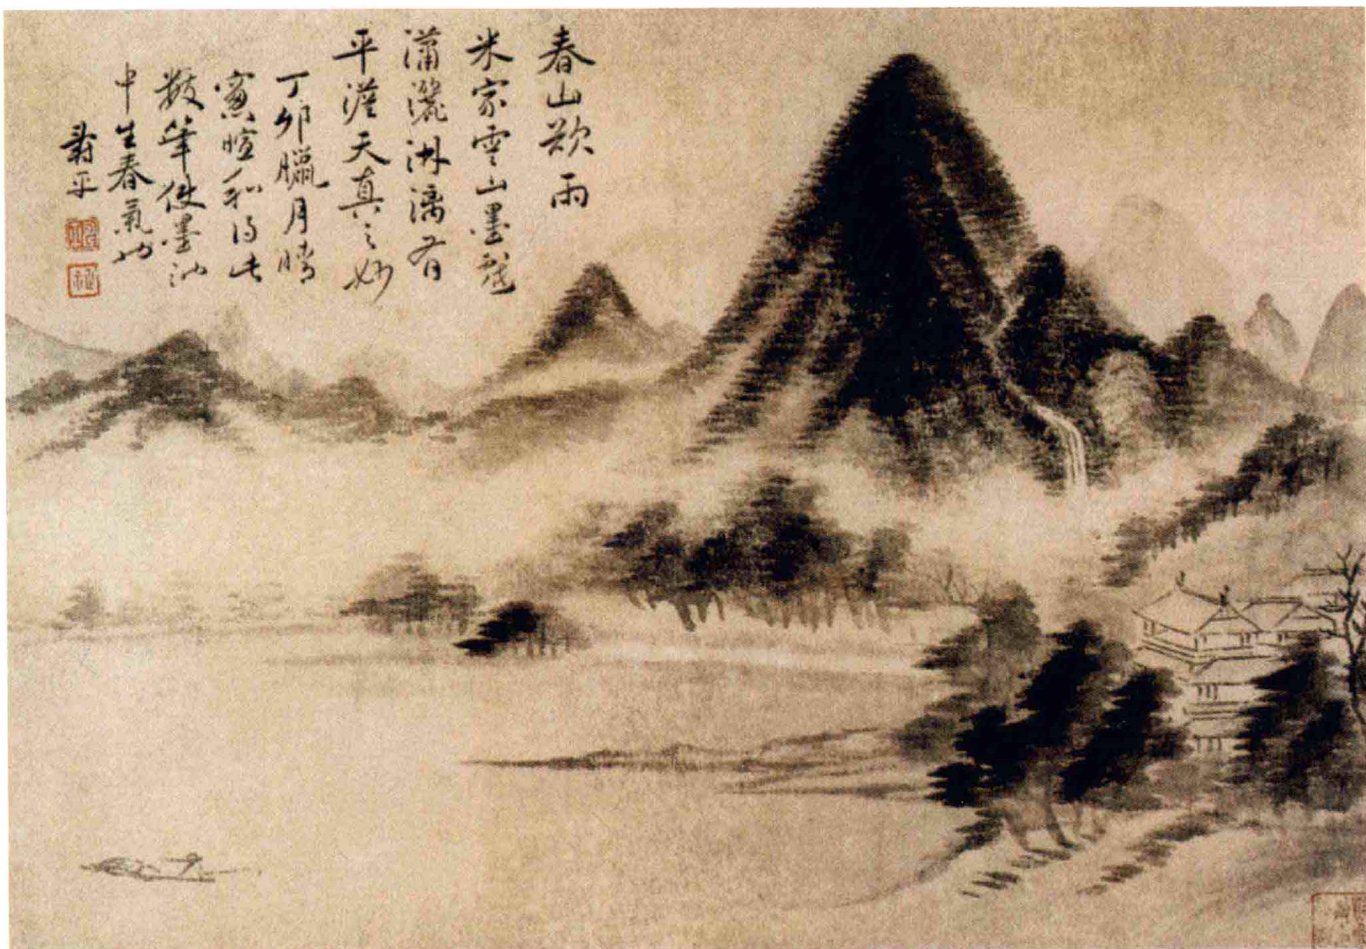 春山欲雨
米家雲山墨戲
瀟灑淋漓有
平淡天真之妙
丁卯臘月晴
窗暄和得此
數筆使墨池
中生春氣也
壽平